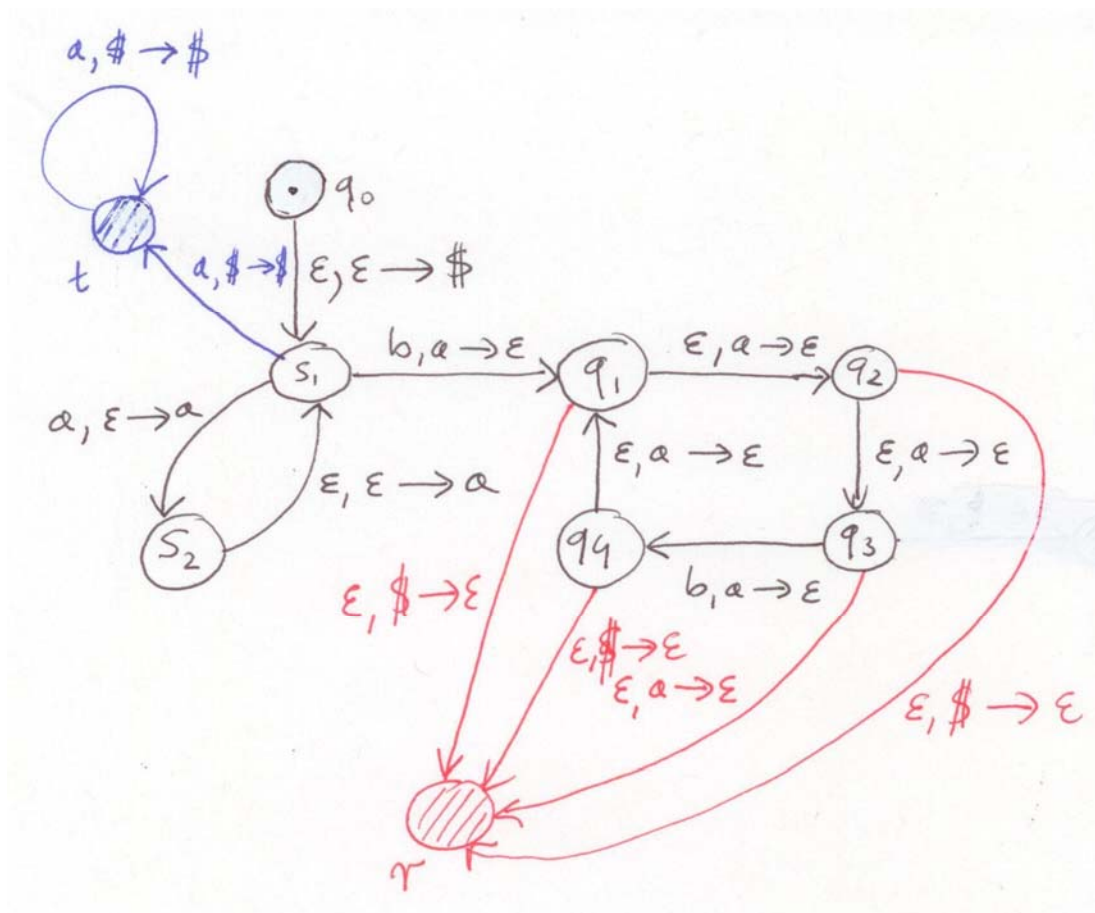 a, $ → $
q₀
t
a, $ → $
ε, ε → $
S₁
b, a → ε
q₁
ε, a → ε
q₂
a, ε → a
ε, ε → a
ε, a → ε
ε, a → ε
S₂
q₄
q₃
b, a → ε
ε, $ → ε
ε, $ → ε
ε, a → ε
ε, $ → ε
r